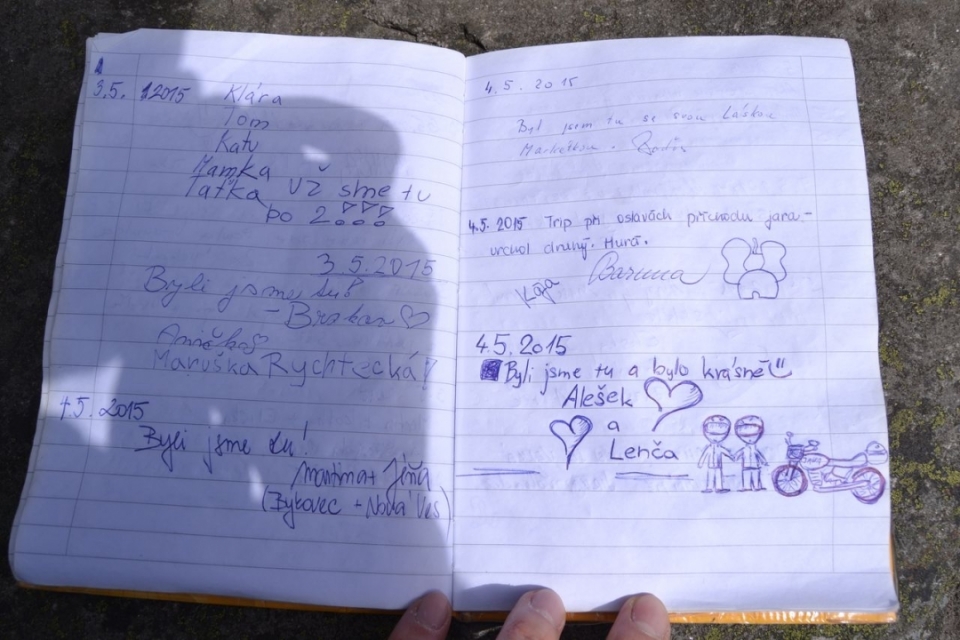 3.5. 2015 Klára
Tom
Katu
Mamka
Taťka už sme tu
po 2 !!!
3.5.2015
Byli jsme tu!
Anička
Maruška Rychtecká!
5. 2015
Byli jsme tu!
Martina + Jíňa
+ Nová Ves)
4.5. 2015
Byl jsem tu se svou Láskou
Markétkou.
4.5. 2015 Trip při oslavách příchodu jara -
vrchol druhý. Hurá.
Kája Baruna
4.5.2015
Byli jsme tu a bylo krásně
Alešek
a
Lenča